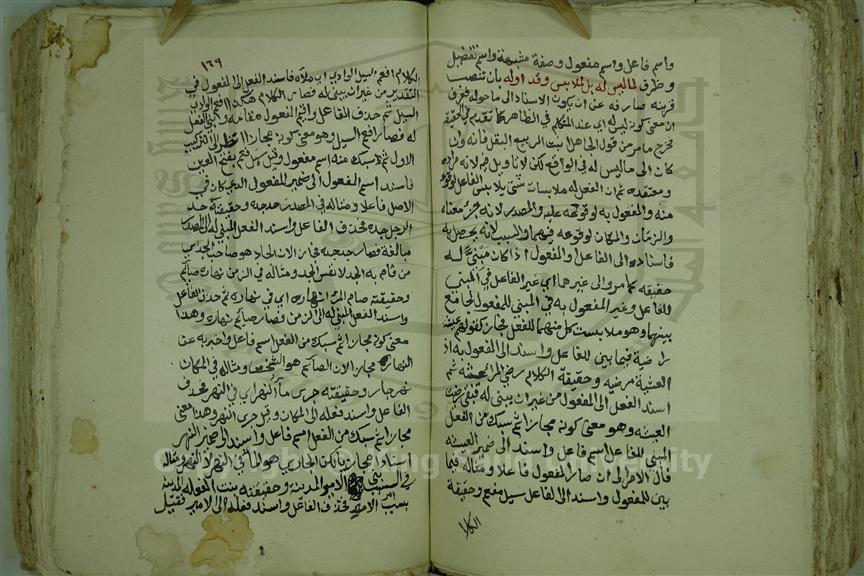 واسم فاعل واسم مفعول وصفة مشبهة واسم تفضيل
وظرف لما ليس له بل لملابس وقد اوله بان تنصب
قرينة صارفة عن ان يكون الاسناد الى ما هو له فعرف
ان معنى كونه ليس له اي عند المتكلم في الظاهر كما تقدم في الحقيقة
فخرج ما مر من قول الجاهل انبت الربيع البقل فانه وان
كان الى ما ليس له في الواقع لكن لا تاول فيه لانه مراده
ومعتقده ثم ان الفعل له ملابسات شتى يلابس الفاعل لوقوعه
منه والمفعول به لوقوعه عليه والمصدر لانه جزء معناه
والزمان والمكان لوقوعه فيهما والسبب لانه يحصل به
فاسناده الى الفاعل والمفعول اذا كان مبنيا له
حقيقة كما مر والى غيرهما اي غير الفاعل في المبني
للفاعل وغير المفعول به في المبني للمفعول لجامع
بينهما وهو ملابست كل منهما للفعل مجاز كقولهم عيشة
راضية فيما بني للفاعل واسند الى المفعول به اذ
العيشة مرضية وحقيقة الكلام رضي المرء عيشته ثم
اسند الفعل الى المفعول من غير ان يبنى له فبقي رضيت
العيشة وهو معنى كونه مجازا ثم سبك من الفعل
المبني للفاعل اسم فاعل واسند الى ضمير العيشة
فال الامر الى ان صار المفعول فاعلا ومثاله فيما
بني للمفعول واسند الى الفاعل سيل مفعم وحقيقة
الكلا
١٦٩
الكلام افعم السيل الوادي اي ملأه فاسند الفعل الى المفعول في
التقدير من غير ان يبنى له فصار الكلام هكذا افعم الوادي
السيل ثم حذف الفاعل واقيم المفعول مقامه وبني الفعل
له فصار افعم السيل وهو معنى كونه مجازا الى التركيب
الاول ثم سبك منه اسم مفعول وقيل سيل مفعم بفتح العين
فاسند اسم المفعول الى ضمير المفعول الذي كان في
الاصل فاعلا ومثاله في المصدر جد جده وحقيقته جد
الرجل جده فحذف الفاعل واسند الفعل المبني له الى المصدر
مبالغة فصار جد جده مجاز لان الجاد هو صاحب الجد اي
من قام به الجد لا نفس الجد ومثاله في الزمن نهاره صائم
وحقيقته صام المرء نهاره اي في نهاره ثم حذف الفاعل
واسند الفعل المبني له الى الزمن فصار صائم نهاره وهذا
معنى كونه مجازا ثم سبك من الفعل اسم فاعل واخبر به عن
النهار مجاز لان الصائم هو الشخص ومثاله في المكان
نهر جار وحقيقته جرى ماء النهر اي في النهر فحذف
الفاعل واسند فعله الى المكان وقيل جرى النهر وهذا معنى
مجاز ثم سبك من الفعل اسم فاعل واسند الى ضمير النهر
اسنادا مجازيا لان الجاري هو الماء في النهر لا النهر ومثاله
في السبب بنى الامير المدينة وحقيقته بنت الفعلة المدينة
بسبب امر الامير فحذف الفاعل واسند فعله الى الامير فقيل